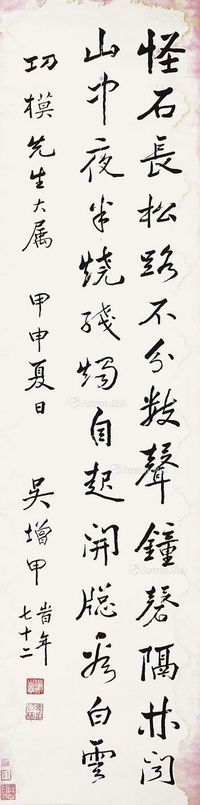 怪石長松路不分數聲鐘磬隔林聞
山中夜半燒殘燭自起開牕看白雲
功模先生大属 甲申夏日 吳增甲 昔年七十二